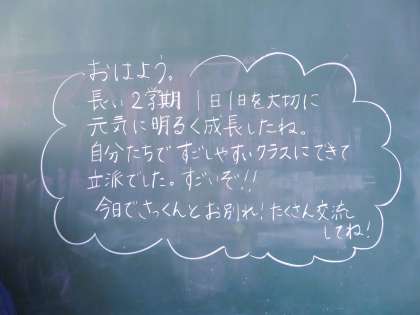 おはよう。
長い2学期 1日1日を大切に
元気に明るく成長したね。
自分たちですごしやすいクラスにできて
立派でした。すごいぞ!!
今日でさっくんとお別れ!たくさん交流
してね!